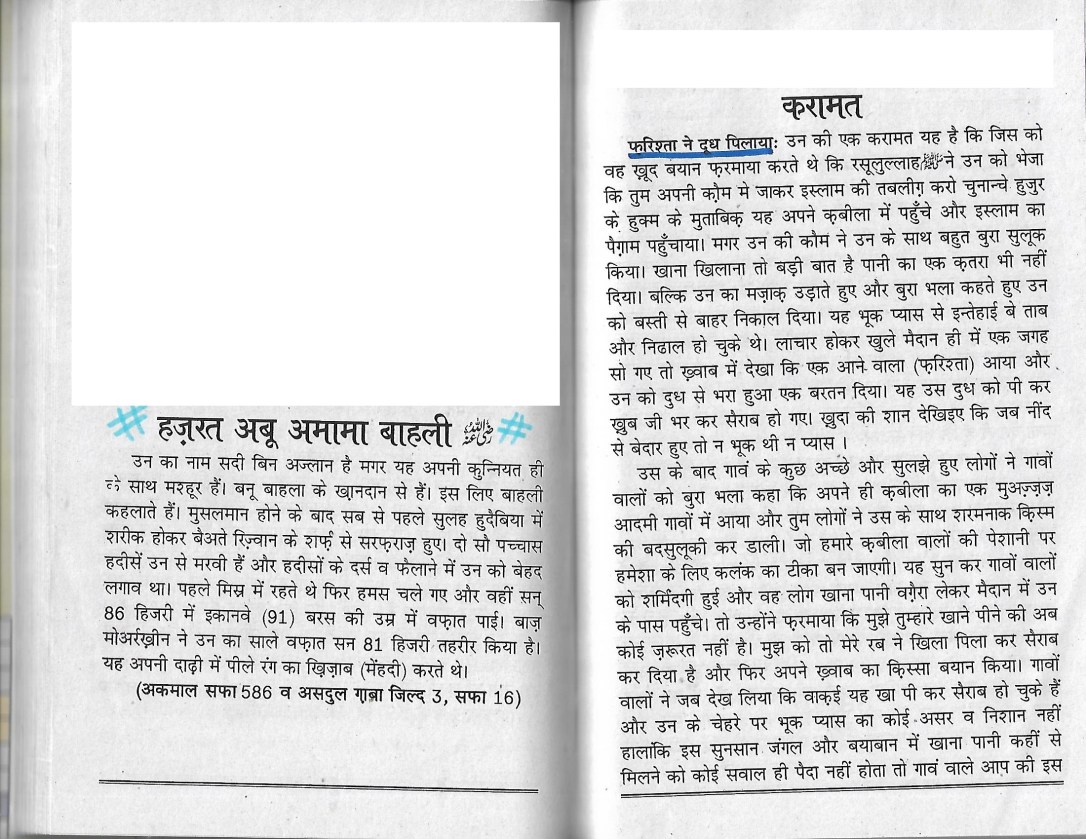 हज़रत अबू अमामा बाहली رضی اللہ عنہ
उन का नाम सदी बिन अज्लान है मगर यह अपनी कुन्नियत ही
के साथ मश्हूर हैं। बनू बाहला के खा़नदान से हैं। इस लिए बाहली
कहलाते हैं। मुसलमान होने के बाद सब से पहले सुलह हुदैबिया में
शरीक होकर बैअते रिज़्वान के शर्फ़ से सरफ़राज़ हुए। दो सौ पच्चास
हदीसें उन से मरवी हैं और हदीसों के दर्स व फैलाने में उन को बेहद
लगाव था। पहले मिस्र में रहते थे फिर हमस चले गए और वहीं सन्
86 हिजरी में इकानवे (91) बरस की उम्र में वफ़ात पाई। बाज़
मोअर्रख़ीन ने उन का साले वफ़ात सन 81 हिजरी तहरीर किया है।
यह अपनी दाढ़ी में पीले रंग का खि़ज़ाब (मेंहदी) करते थे।
(अकमाल सफा 586 व असदुल गा़बा जिल्द 3, सफा 16)
करामत
फ़रिश्ता ने दूध पिलायाः उन की एक करामत यह है कि जिस को
वह खू़द बयान फ़रमाया करते थे कि रसूलुल्लाह ﷺ ने उन को भेजा
कि तुम अपनी कौ़म मे जाकर इस्लाम की तबलीग़ करो चुनान्चे हुजुर
के हुक्म के मुताबिक़ यह अपने क़बीला में पहुँचे और इस्लाम का
पैगा़म पहुँचाया। मगर उन की कौम ने उन के साथ बहुत बुरा सुलूक
किया। खाना खिलाना तो बड़ी बात है पानी का एक क़तरा भी नहीं
दिया। बल्कि उन का मज़ाक़ उड़ाते हुए और बुरा भला कहते हुए उन
को बस्ती से बाहर निकाल दिया। यह भूक प्यास से इन्तेहाई बे ताब
और निढाल हो चुके थे। लाचार होकर खुले मैदान ही में एक जगह
सो गए तो ख़्वाब में देखा कि एक आने वाला (फ़रिश्ता) आया और
उन को दुध से भरा हुआ एक बरतन दिया। यह उस दुध को पी कर
खु़ब जी भर कर सैराब हो गए। खु़दा की शान देखिए कि जब नींद
से बेदार हुए तो न भूक थी न प्यास ।
उस के बाद गावं के कुछ अच्छे और सुलझे हुए लोगों ने गावों
वालों को बुरा भला कहा कि अपने ही क़बीला का एक मुअज़्ज़ज़
आदमी गावों में आया और तुम लोगों ने उस के साथ शरमनाक कि़स्म
की बदसुलूकी कर डाली। जो हमारे क़बीला वालों की पेशानी पर
हमेशा के लिए कलंक का टीका बन जाएगी। यह सुन कर गावों वालों
को शर्मिंदगी हुई और वह लोग खाना पानी वगै़रा लेकर मैदान में उन
के पास पहुँचे। तो उन्होंने फ़रमाया कि मुझे तुम्हारे खाने पीने की अब
कोई ज़रूरत नहीं है। मुझ को तो मेरे रब ने खिला पिला कर सैराब
कर दिया है और फिर अपने ख़्वाब का कि़स्सा बयान किया। गावों
वालों ने जब देख लिया कि वाक़ई यह खा पी कर सैराब हो चुके हैं
और उन के चेहरे पर भूक प्यास का कोई असर व निशान नहीं
हालांकि इस सुनसान जंगल और बयाबान में खाना पानी कहीं से
मिलने को कोई सवाल ही पैदा नहीं होता तो गावं वाले आप की इस